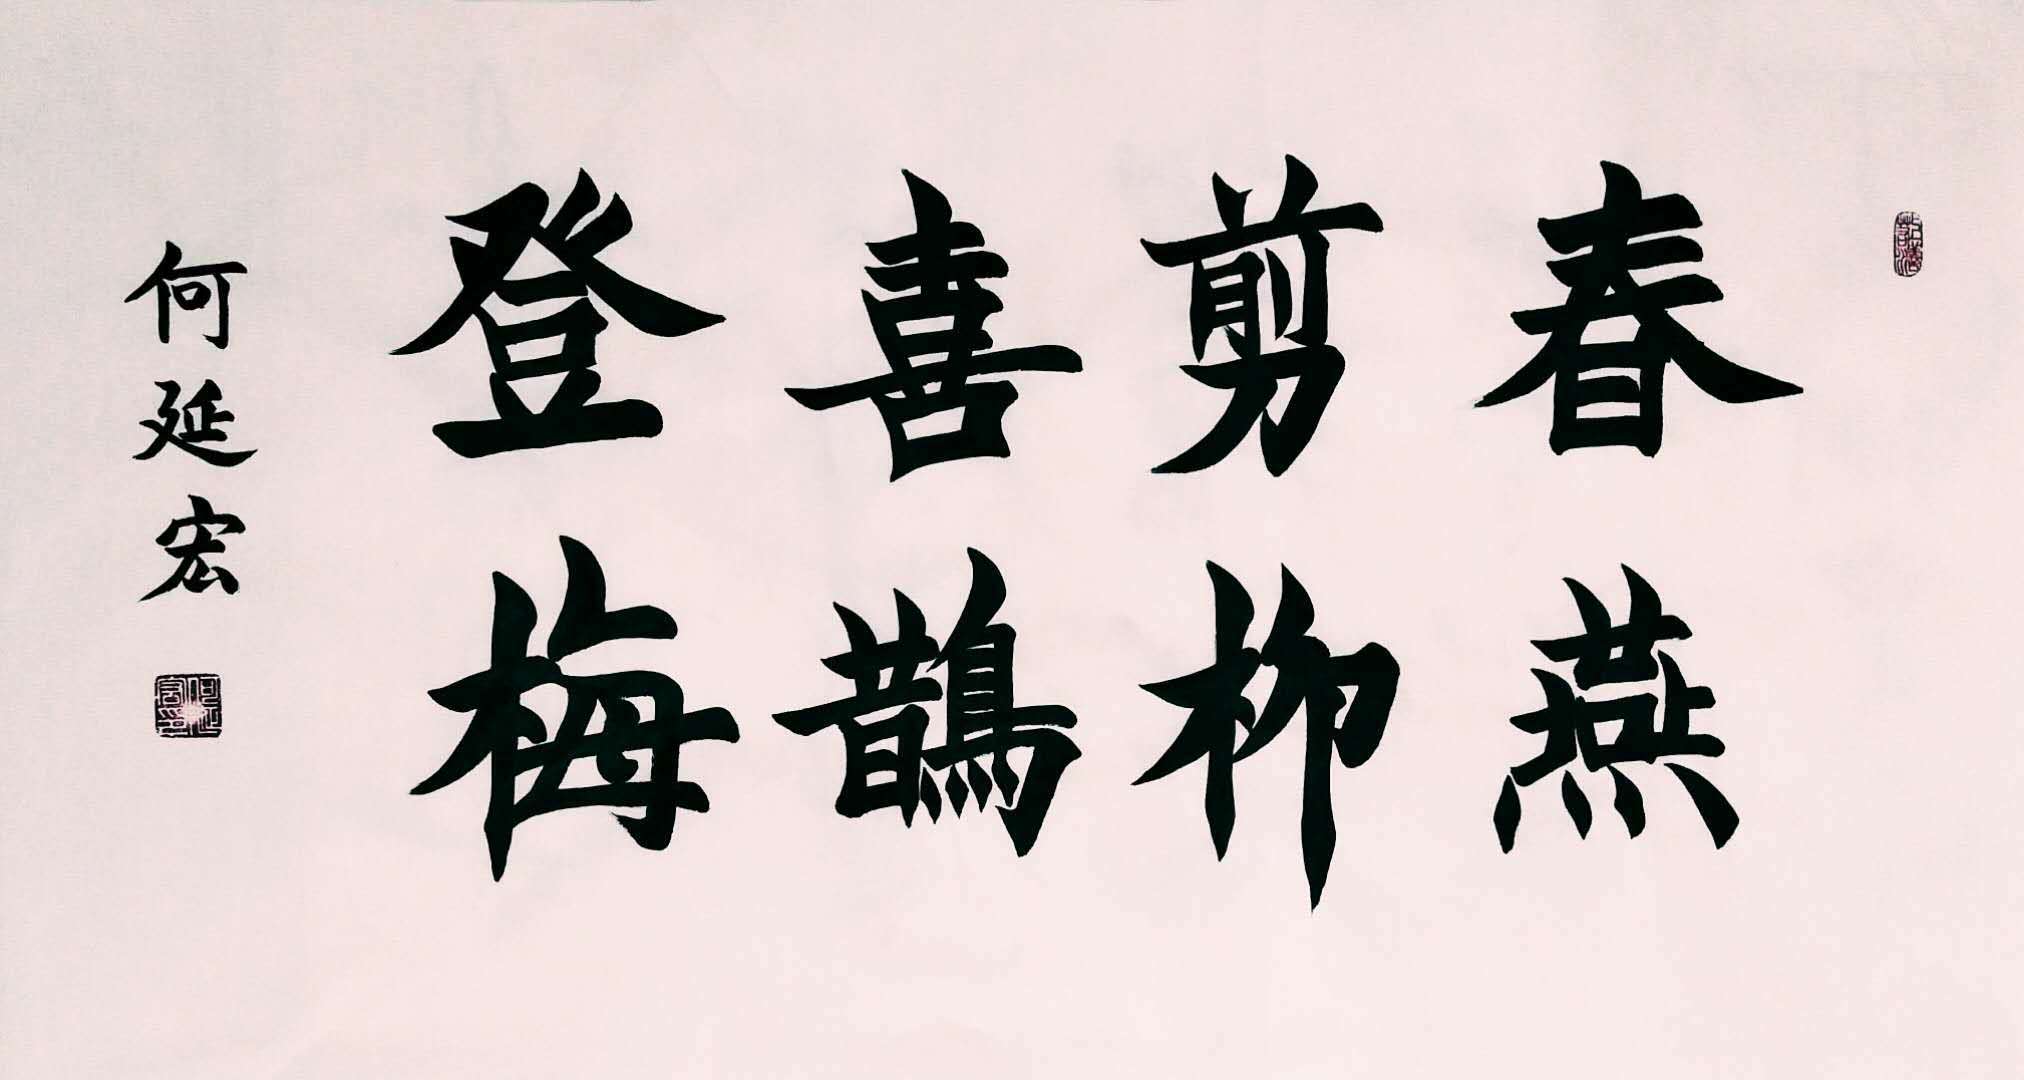 春燕
剪柳
喜鵲
登梅
何延宏